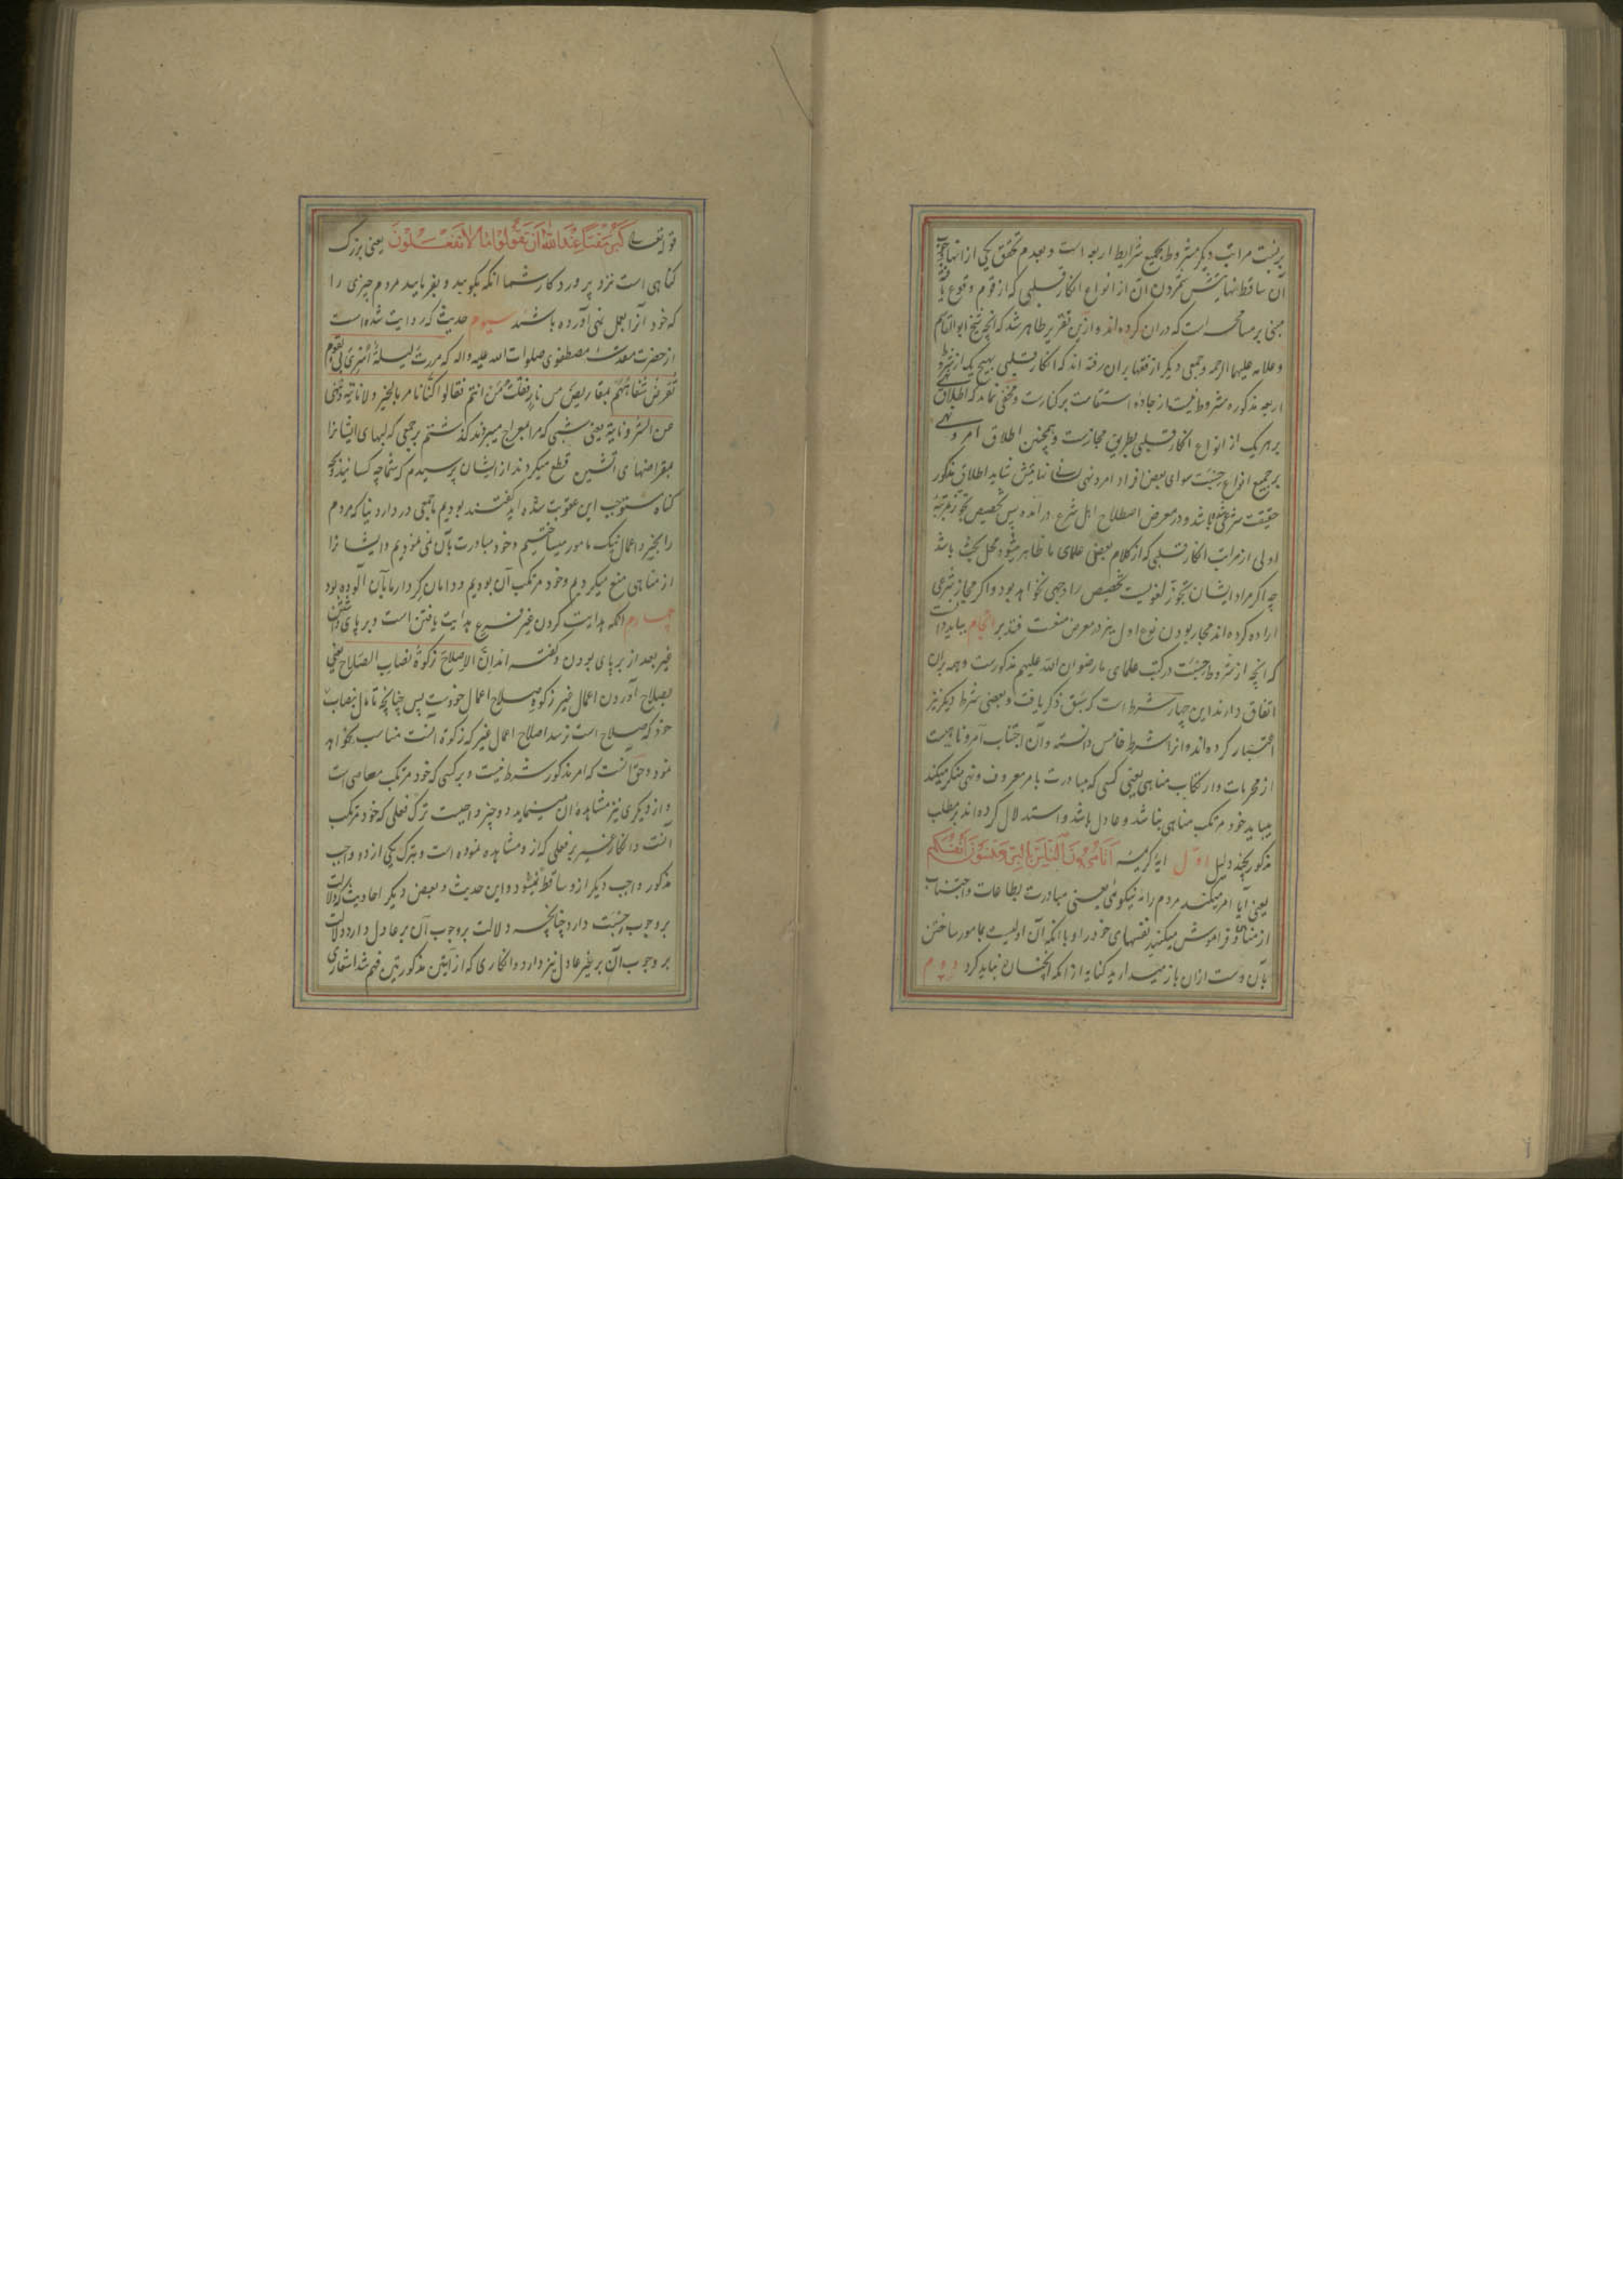 بر نسبت مراتب دیکر مشروط بجمیع شرایط اربعه است و بعدم تحقق یکی از انها وجوب
آن ساقط نهایتش شمردن آن از انواع انکار قلبی که از قوم وقوع یافته
مبنی بر مسامحه است که در ان کرده اند و ازین تقریر ظاهر شد که انچه شیخ ابو القاسم
و علامه علیهما الرحمه و جمعی دیکر از فقها بر ان رفته اند که انکار قلبی بهیچ یک از شروط
اربعه مذکوره مشروط نیست از جاده استقامت بر کنارست و مخفی نماند که اطلاق نهی
بر هر یک از انواع انکار قلبی بطریق مجازست و همچنین اطلاق امر و نهی
بر جمیع انواع حسبت سوای بعض افراد امر و نهی لسانی نهایتش شاید اطلاق مذکور
حقیقت شرعی باشد و در معرض اصطلاح اهل شرع در آمده پس تخصیص تجوز بمرتبه
اولی از مراتب انکار قلبی که از کلام بعضی علمای ما ظاهر میشود محل بحث باشد
چه اکر مراد ایشان تجوز لغویست تخصیص را وجهی نخواهد بود و اکر مجاز شرعی
اراده کرده اند مجاز بودن نوع اول نیز در معرض منعست فتدبر انجام بباید دانست
که انچه از شروط حسبت در کتب علمای ما رضوان الله علیهم مذکورست و همه بران
اتفاق دارند این چهار شرط است که سبق ذکر یافت و بعضی شرط دیکر نیز
اعتبار کرده اند و انرا شرط خامس دانسته و آن اجتناب آمر و ناهیست
از محرمات و ارتکاب مناهی یعنی کسی که مبادرت بامر معروف و نهی منکر میکند
میباید خود مرتکب مناهی نباشد و عادل باشد و استدلال کرده اند بر مطلب
مذکور بچند دلیل اول ایه کریمه اَتَأمُرُونَ النّاسَ بِالبِرِّ وَتَنسَونَ اَنفُسَکُم
یعنی آیا امر میکنید مردم را به نیکوئی یعنی مبادرت بطاعات و اجتناب
از مناهی و فراموش میکنید نفسهای خود را و با انکه آن اولیست بمامور ساختن
بآن دست از ان باز میدارید کنایه از انکه انچنان نباید کرد دویم
قوله تعالی کَبُرَ مَقتًا عِندَ اللهِ اَن تَقُولُوا مَا لَا تَفعَلُونَ یعنی بزرک
کناهی است نزد پروردکار شما انکه بکویید و بفرمایید مردم چیزی را
که خود آنرا بعمل نمی آورده باشید سیوم حدیثی که روایت شده است
از حضرت مقدسه مصطفوی صلوات الله علیه و اله که مررت لیلة اُسری بی بقوم
تقرض شفاههم بمقاریض من نار فقلت من انتم فقالوا کنا نامر بالخیر و لا ناتیه و ننهی
عن الشر و ناتیه یعنی شبی که مرا بمعراج میبردند کذشتم بر جمعی که لبهای ایشانرا
بمقراضهای اتشین قطع میکردند از ایشان پرسیدم که شما چه کسانید و بچه
کناه مستوجب این عقوبت شده اید کفتند بودیم ما جمعی در دار دنیا که مردم
را بخیر و اعمال نیک مامور میساختیم و خود مبادرت بآن نمی نمودیم و ایشانرا
از مناهی منع میکردیم و خود مرتکب آن بودیم و دامان کردار ما بآن آلوده بود
چهارم انکه هدایت کردن غیر فرع هدایت یافتن است و بر پای داشتن
غیر بعد از بر پای بودن و کفته اند اِنَّ الاِصلاح زکوةُ نصاب الصّلاح یعنی
بصلاح آوردن اعمال غیر زکوة صلاح اعمال خودست پس چنانچه تا مال بنصاب
خود که صلاح است نرسد اصلاح اعمال غیر که زکوة انست مناسب نخواهد
نمود و حق انست که امر مذکور شرط نیست و بر کسی که خود مرتکب معاصی است
و از دیکری نیز مشاهده ان مینماید دو چیز واجبست ترک فعلی که خود مرتکب
آنست و انکار غیر بر فعلی که از و مشاهده نموده است و بترک یکی از دو واجب
مذکور واجب دیکر ازو ساقط نمیشود و این حدیث و بعض دیکر احادیث که دلالت
بر وجوب حسبت دارد چنانچه دلالت بر وجوب آن بر عادل دارد دلالت
بر وجوب آن بر غیر عادل نیز دارد و انکاری که از آیتین مذکورتین فهم شد اشعاری